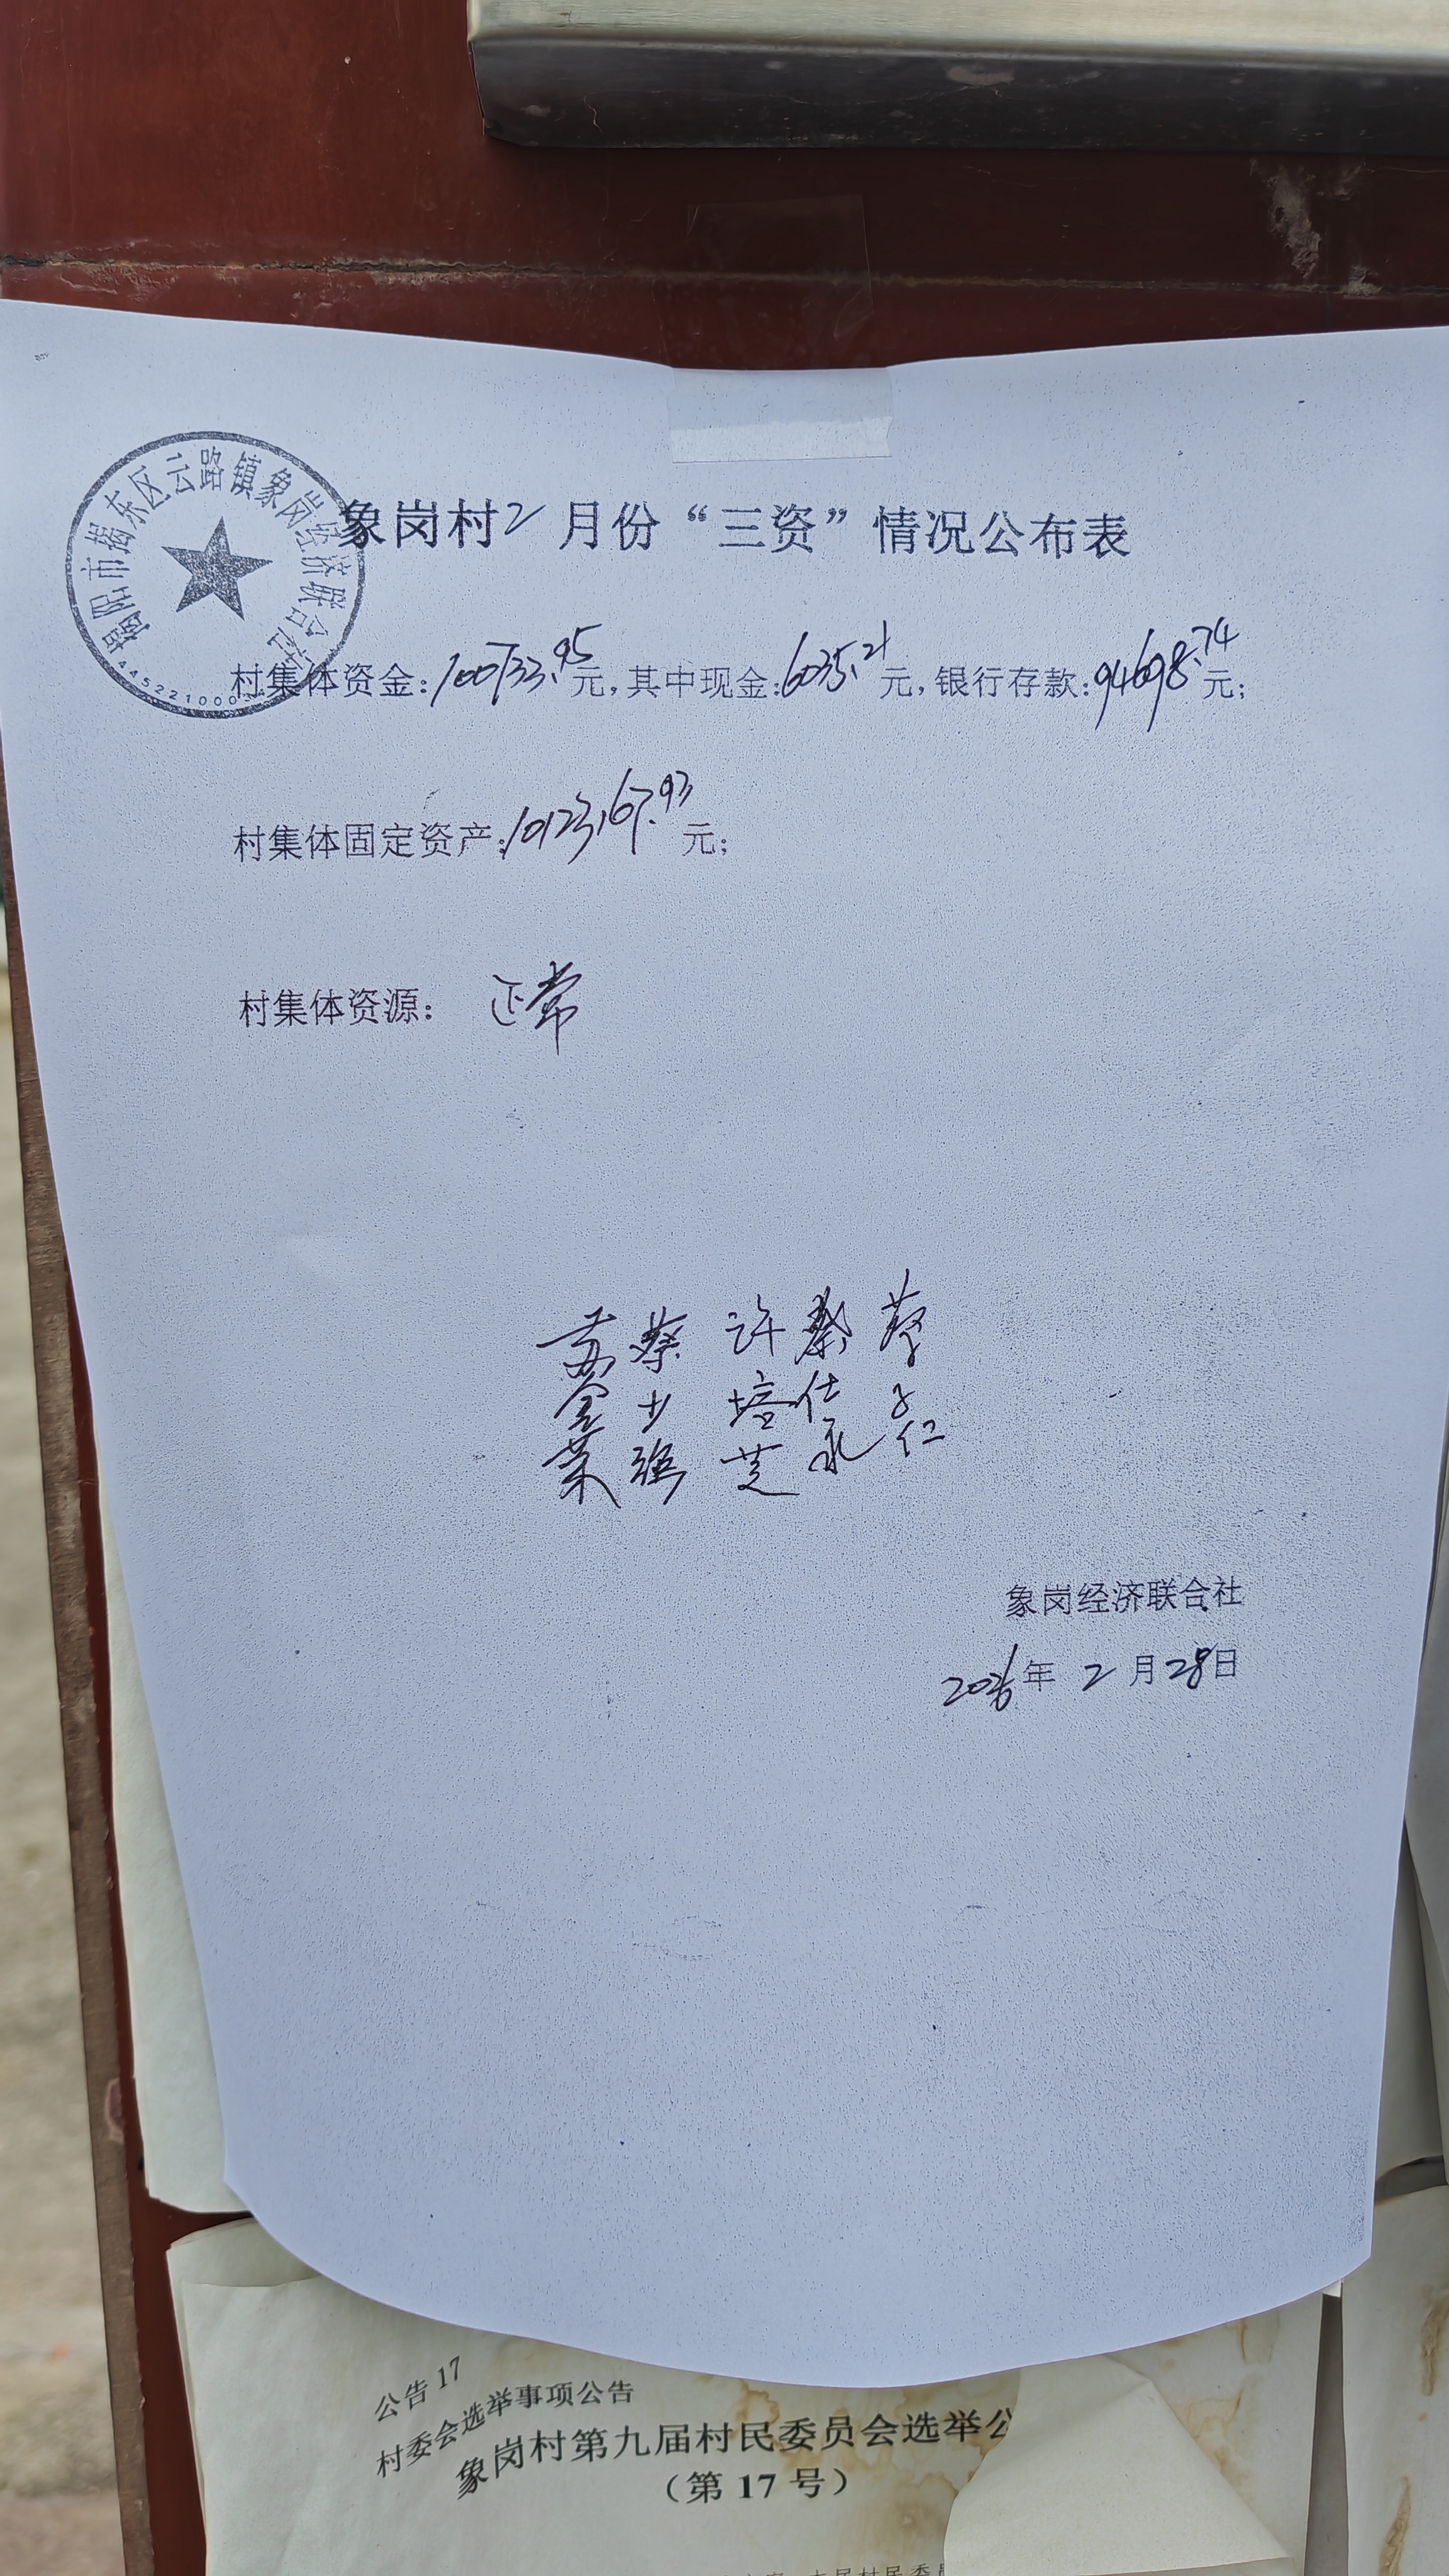 揭阳市揭东区云路镇象岗经济联合社
象岗村2月份“三资”情况公布表
村集体资金:100733.95元,其中现金:6035.21元,银行存款:94698.74元;
村集体固定资产:10123167.93元;
村集体资源: 正常
苏金
蔡少强
许培芝
蔡仕永
蔡子仁
象岗经济联合社
2026年2月28日
公告17
村委会选举事项公告
象岗村第九届村民委员会选举公
(第17号)